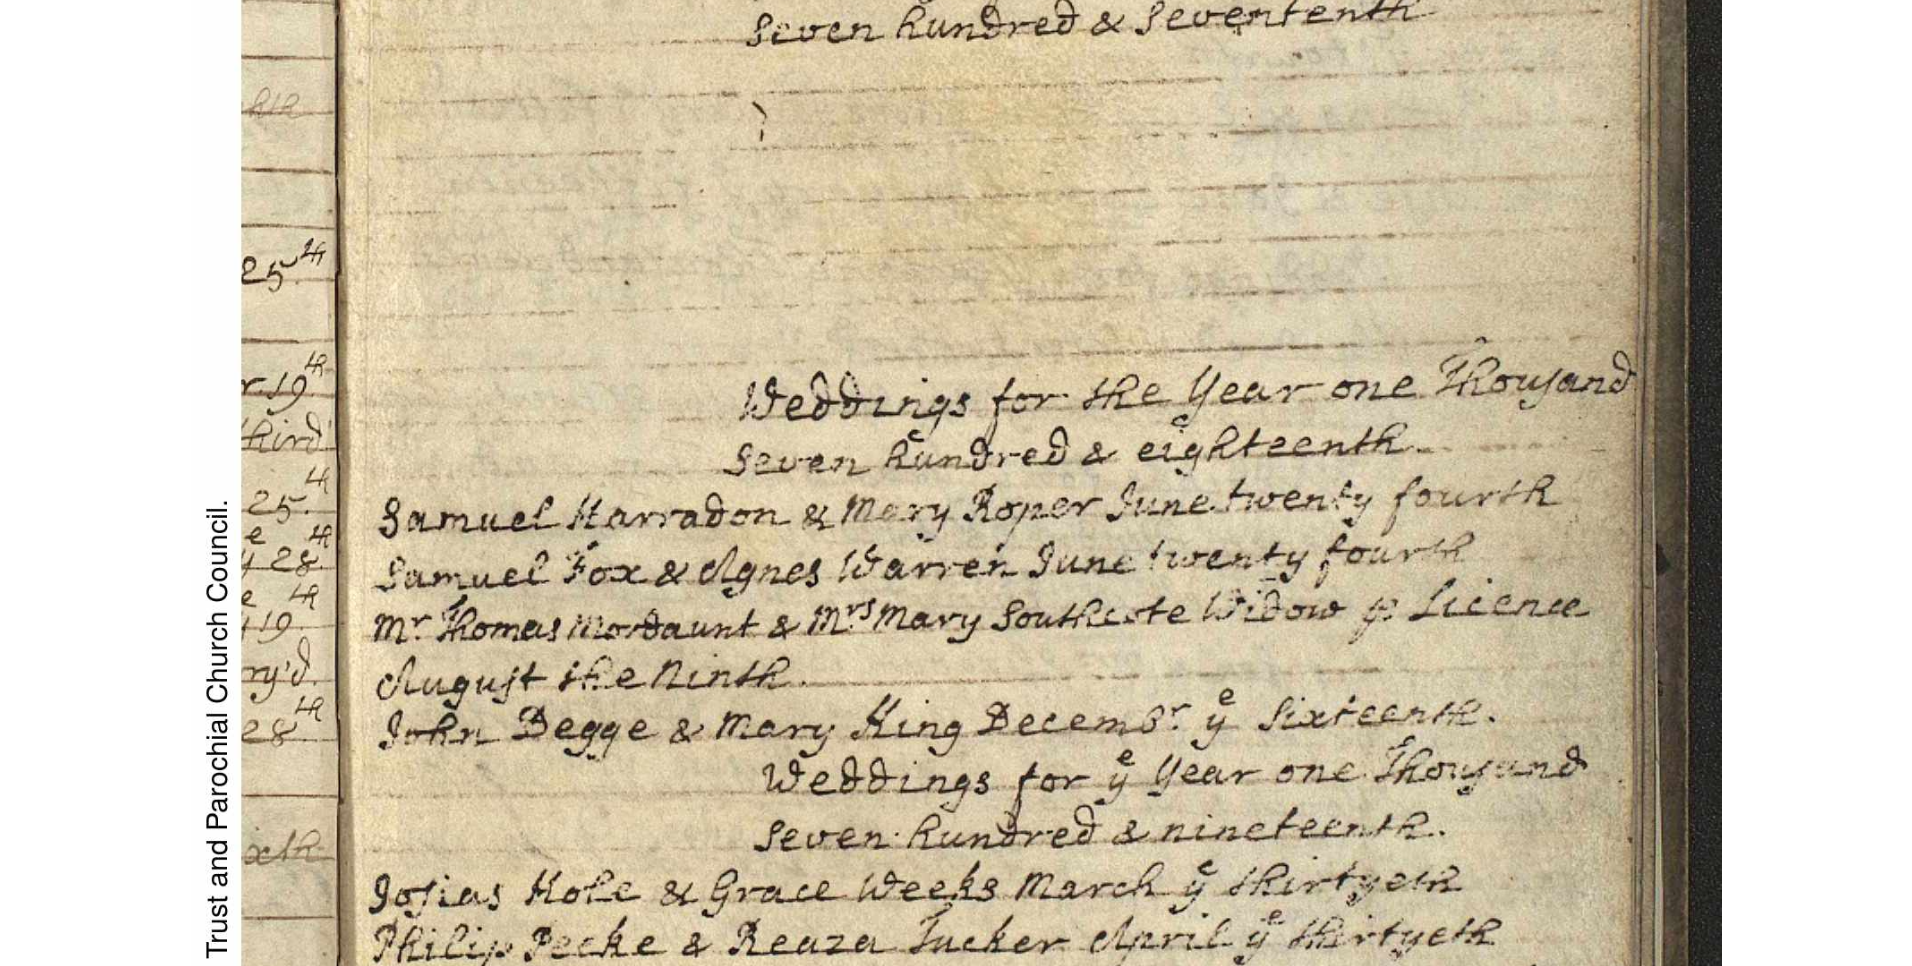 Seven hundred & Sevententh
Weddings for the Year one Thousand
Seven hundred & eighteenth.
Samuel Harradon & Mary Roper June twenty fourth
Samuel Fox & Agnes Warren June twenty fourth
Mr Thomas Mordaunt & Mrs Mary Southcote Widow p Licence
August the Ninth.
John Degge & Mary King Decembr ye Sixteenth.
Weddings for ye Year one Thousand
Seven hundred & nineteenth.
Josias Hole & Grace Weeks March ye thirtyeth
Philip Pecke & Reaza Tucker April ye thirtyeth
25.th
r 19th
third
25.th
e th
y 28.
e th
19.
ry'd.
28th
xth
Trust and Parochial Church Council.